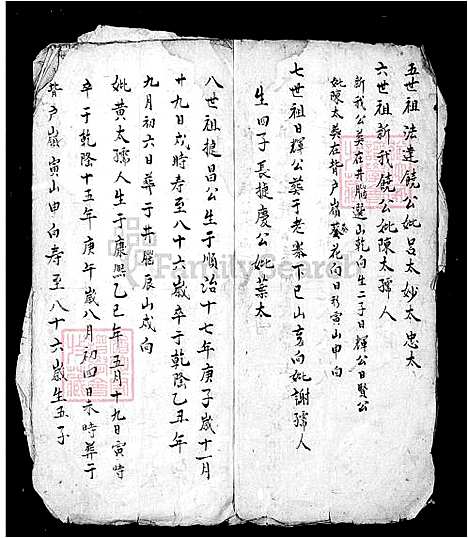 五世祖法達饒公妣呂太妙太忠太
六世祖新我饒公妣陳太孺人
新我公葬在井腦邊山乾向生二子日輝公日賢公
妣陳太葬在背戶嶺葵花向日形寅山申向
七世祖日輝公葬于老寨下巳山亥向妣謝孺人
生四子長捷慶公妣葉太
八世祖捷昌公生于順治十七年庚子歲十一月
廿九日戌時寿至八十六歲卒于乾隆乙丑年
九月初六日葬于井腦辰山戍向
妣黄太孺人生于康熙乙巳年五月十九日寅時
卒于乾隆十五年庚午歲八月初四日未時葬于
背戶嶺寅山申向寿至八十六歲生五子
FamilySearch